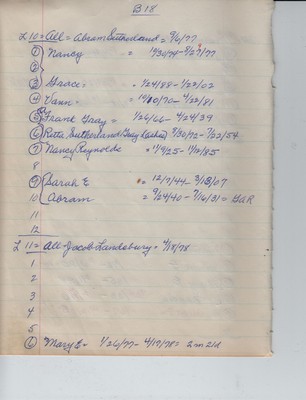 B18
L 10 = All = Abram Sutherland = 9/6/77
1 Nancy = 9/27/77
2
3 Grace = 1/24/88 - 1/22/02
4 Vann = 10/10/70 - 4/22/81
5 Frank Gray = 1/26/66 - 4/24/39
6 Retta Sutherland Gray 9/30/72 - 7/22/54
7 Nancy Reynolds = 1/9/25 - 1/12/85
8
9 Sarah E = 12/7/44 - 3/18/07
10 Abram = 9/24/40 - 7/16/31 = GAR
11
12
L 11 = All - Jacob Landsbury = 4/18/78
1
2
3
4
5
6 Mary E = 1/26/77 - 4/17/78 = 2m 21d